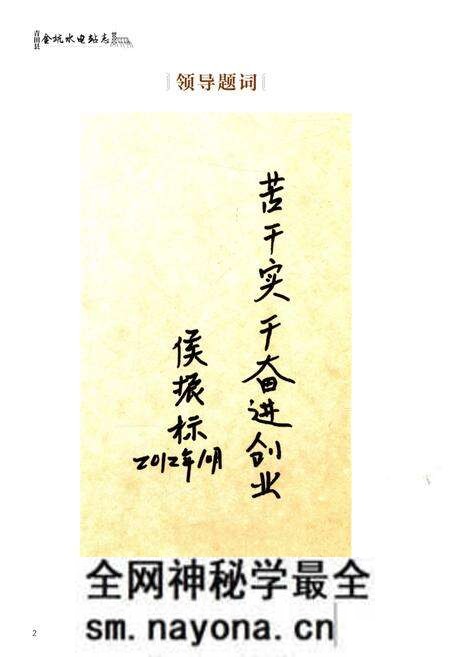 青田县
金坑水电站志
领导题词
苦干实干奋进创业
侯振标
2012年10月
全网神秘学最全
sm.nayona.cn
2